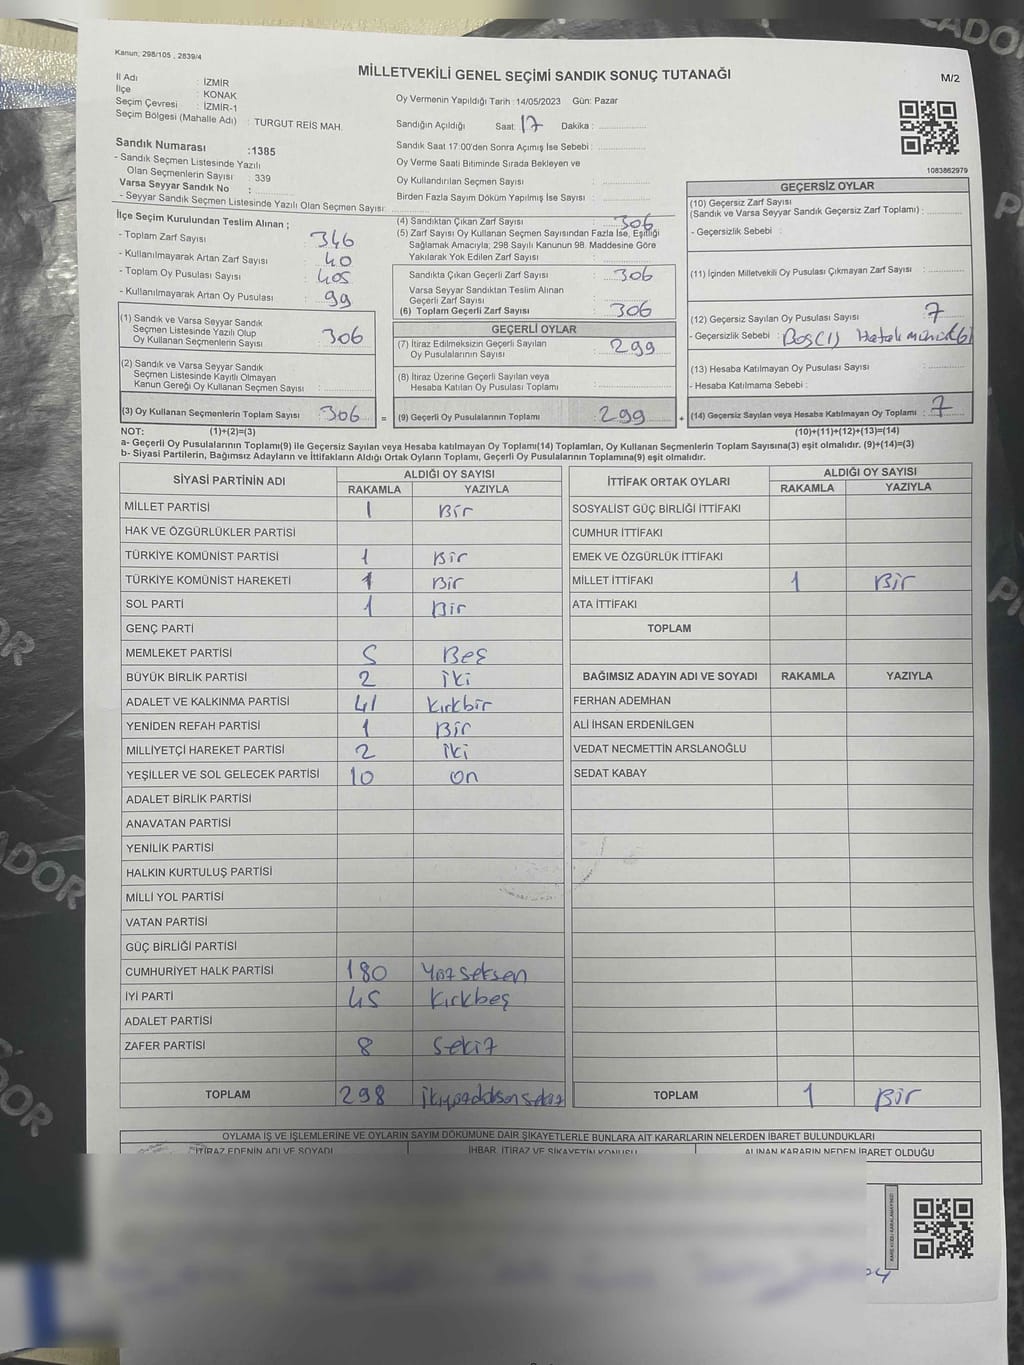 Kanun; 298/105 , 2839/4
MİLLETVEKİLİ GENEL SEÇİMİ SANDIK SONUÇ TUTANAĞI
M/2
İl Adı : İZMİR
İlçe : KONAK
Seçim Çevresi : İZMİR-1
Seçim Bölgesi (Mahalle Adı) : TURGUT REİS MAH.
Sandık Numarası :1385
- Sandık Seçmen Listesinde Yazılı
Olan Seçmenlerin Sayısı : 339
Varsa Seyyar Sandık No :
- Seyyar Sandık Seçmen Listesinde Yazılı Olan Seçmen Sayısı:
Oy Vermenin Yapıldığı Tarih :14/05/2023 Gün: Pazar
Sandığın Açıldığı Saat: 17 Dakika :
Sandık Saat 17:00'den Sonra Açımış İse Sebebi :
Oy Verme Saati Bitiminde Sırada Bekleyen ve
Oy Kullandırılan Seçmen Sayısı :
Birden Fazla Sayım Döküm Yapılmış İse Sayısı :
1083862979
İlçe Seçim Kurulundan Teslim Alınan ;
- Toplam Zarf Sayısı : 346
- Kullanılmayarak Artan Zarf Sayısı : 40
- Toplam Oy Pusulası Sayısı : 405
- Kullanılmayarak Artan Oy Pusulası : 99
(1) Sandık ve Varsa Seyyar Sandık
Seçmen Listesinde Yazılı Olup
Oy Kullanan Seçmenlerin Sayısı : 306
(2) Sandık ve Varsa Seyyar Sandık
Seçmen Listesinde Kayıtlı Olmayan
Kanun Gereği Oy Kullanan Seçmen Sayısı :
(3) Oy Kullanan Seçmenlerin Toplam Sayısı 306 =
(4) Sandıktan Çıkan Zarf Sayısı : 306
(5) Zarf Sayısı Oy Kullanan Seçmen Sayısından Fazla İse, Eşitliği
Sağlamak Amacıyla; 298 Sayılı Kanunun 98. Maddesine Göre
Yakılarak Yok Edilen Zarf Sayısı :
Sandıkta Çıkan Geçerli Zarf Sayısı : 306
Varsa Seyyar Sandıktan Teslim Alınan
Geçerli Zarf Sayısı :
(6) Toplam Geçerli Zarf Sayısı : 306
GEÇERLİ OYLAR
(7) İtiraz Edilmeksizin Geçerli Sayılan
Oy Pusulalarının Sayısı : 299
(8) İtiraz Üzerine Geçerli Sayılan veya
Hesaba Katılan Oy Pusulası Toplamı :
(9) Geçerli Oy Pusulalarının Toplamı : 299 +
GEÇERSİZ OYLAR
(10) Geçersiz Zarf Sayısı
(Sandık ve Varsa Seyyar Sandık Geçersiz Zarf Toplamı) :
- Geçersizlik Sebebi :
(11) İçinden Milletvekili Oy Pusulası Çıkmayan Zarf Sayısı :
(12) Geçersiz Sayılan Oy Pusulası Sayısı : 7
- Geçersizlik Sebebi : Boş(1) Hatalı mühür(6)
(13) Hesaba Katılmayan Oy Pusulası Sayısı :
- Hesaba Katılmama Sebebi :
(14) Geçersiz Sayılan veya Hesaba Katılmayan Oy Toplamı : 7
NOT: (1)+(2)=(3)
(10)+(11)+(12)+(13)=(14)
a- Geçerli Oy Pusulalarının Toplamı(9) ile Geçersiz Sayılan veya Hesaba katılmayan Oy Toplamı(14) Toplamları, Oy Kullanan Seçmenlerin Toplam Sayısına(3) eşit olmalıdır. (9)+(14)=(3)
b- Siyasi Partilerin, Bağımsız Adayların ve İttifakların Aldığı Ortak Oyların Toplamı, Geçerli Oy Pusulalarının Toplamına(9) eşit olmalıdır.
SİYASİ PARTİNİN ADI ALDIĞI OY SAYISI
RAKAMLA YAZIYLA
MİLLET PARTİSİ 1 Bir
HAK VE ÖZGÜRLÜKLER PARTİSİ
TÜRKİYE KOMÜNİST PARTİSİ 1 Bir
TÜRKİYE KOMÜNİST HAREKETİ 1 Bir
SOL PARTİ 1 Bir
GENÇ PARTİ
MEMLEKET PARTİSİ 5 Beş
BÜYÜK BİRLİK PARTİSİ 2 iki
ADALET VE KALKINMA PARTİSİ 41 Kırkbir
YENİDEN REFAH PARTİSİ 1 Bir
MİLLİYETÇİ HAREKET PARTİSİ 2 iki
YEŞİLLER VE SOL GELECEK PARTİSİ 10 on
ADALET BİRLİK PARTİSİ
ANAVATAN PARTİSİ
YENİLİK PARTİSİ
HALKIN KURTULUŞ PARTİSİ
MİLLİ YOL PARTİSİ
VATAN PARTİSİ
GÜÇ BİRLİĞİ PARTİSİ
CUMHURİYET HALK PARTİSİ 180 Yüzseksen
İYİ PARTİ 45 Kırkbeş
ADALET PARTİSİ
ZAFER PARTİSİ 8 Sekiz
TOPLAM 298 ikiyüzdoksansekiz
İTTİFAK ORTAK OYLARI ALDIĞI OY SAYISI
RAKAMLA YAZIYLA
SOSYALİST GÜÇ BİRLİĞİ İTTİFAKI
CUMHUR İTTİFAKI
EMEK VE ÖZGÜRLÜK İTTİFAKI
MİLLET İTTİFAKI 1 Bir
ATA İTTİFAKI
TOPLAM
BAĞIMSIZ ADAYIN ADI VE SOYADI RAKAMLA YAZIYLA
FERHAN ADEMHAN
ALİ İHSAN ERDENİLGEN
VEDAT NECMETTİN ARSLANOĞLU
SEDAT KABAY
TOPLAM 1 Bir
OYLAMA İŞ VE İŞLEMLERİNE VE OYLARIN SAYIM DÖKÜMÜNE DAİR ŞİKAYETLERLE BUNLARA AİT KARARLARIN NELERDEN İBARET BULUNDUKLARI
İTİRAZ EDENİN ADI VE SOYADI İHBAR, İTİRAZ VE ŞİKAYETİN KONUSU ALINAN KARARIN NEDEN İBARET OLDUĞU